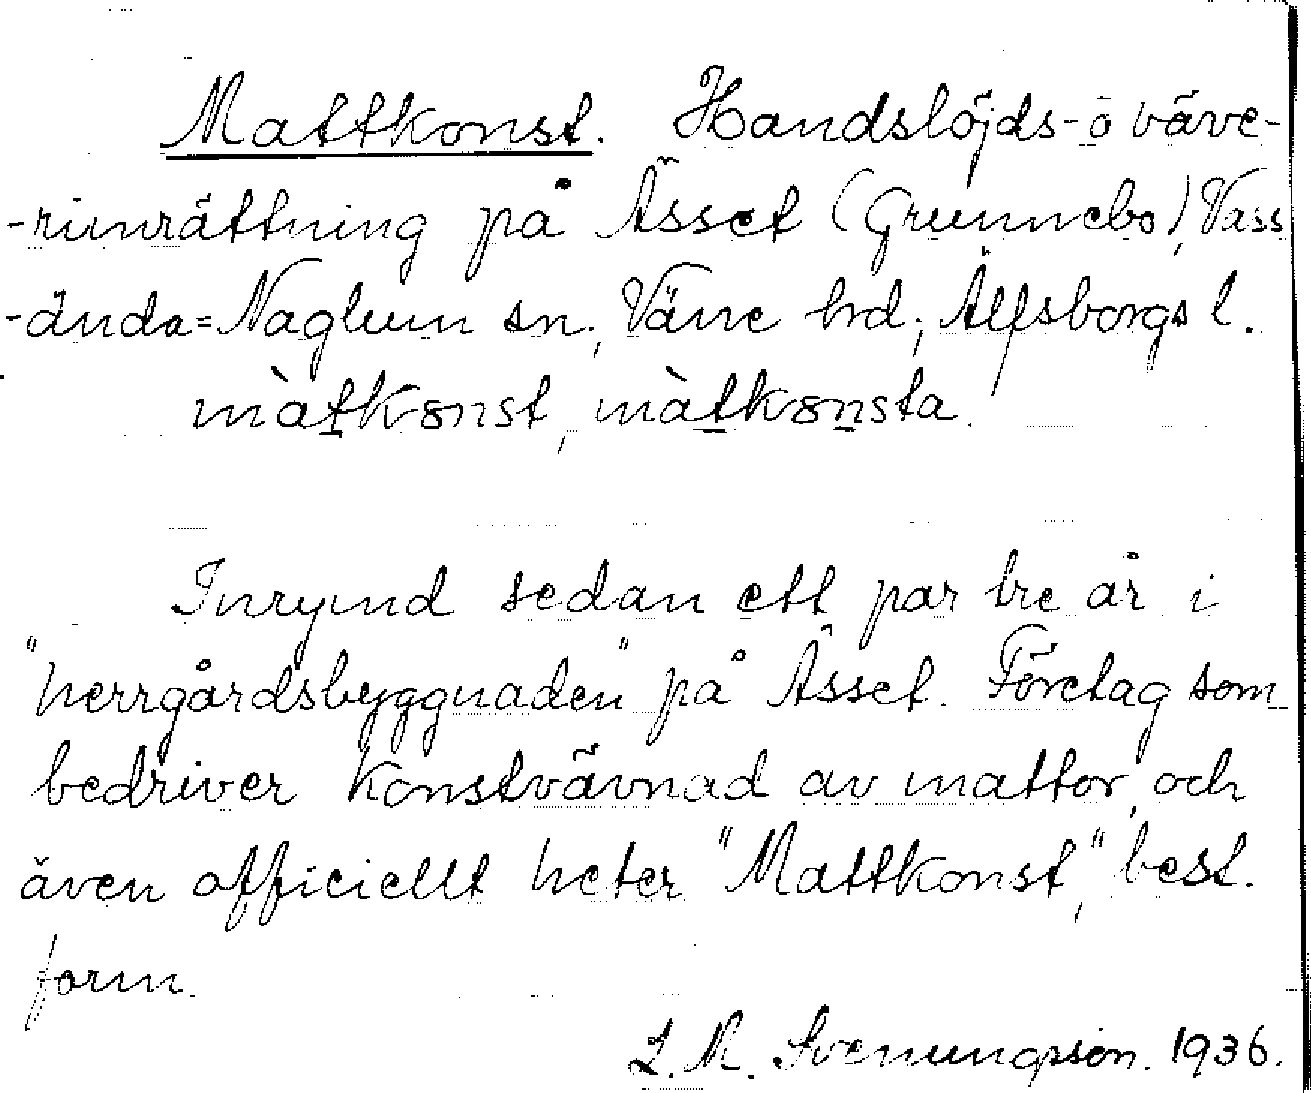 Mattkonst. Handslöjds- o väve-
-riinrättning på Åsset (Grunnebo), Väss
-ända=Naglum sn; Väne hrd; Älfsborgs l.
màtkonst, màtkonsta.
Inrymd sedan ett par tre år i
"herrgårdsbyggnaden" på Åsset. Företag som
bedriver konstvävnad av mattor, och
även officiellt heter "Mattkonst", best.
form.
L. M. Svenungsson. 1936.